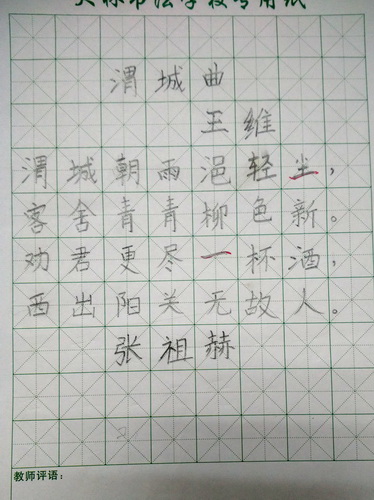 渭城曲
王维
渭城朝雨浥轻尘，
客舍青青柳色新。
劝君更尽一杯酒，
西出阳关无故人。
张祖赫
教师评语：